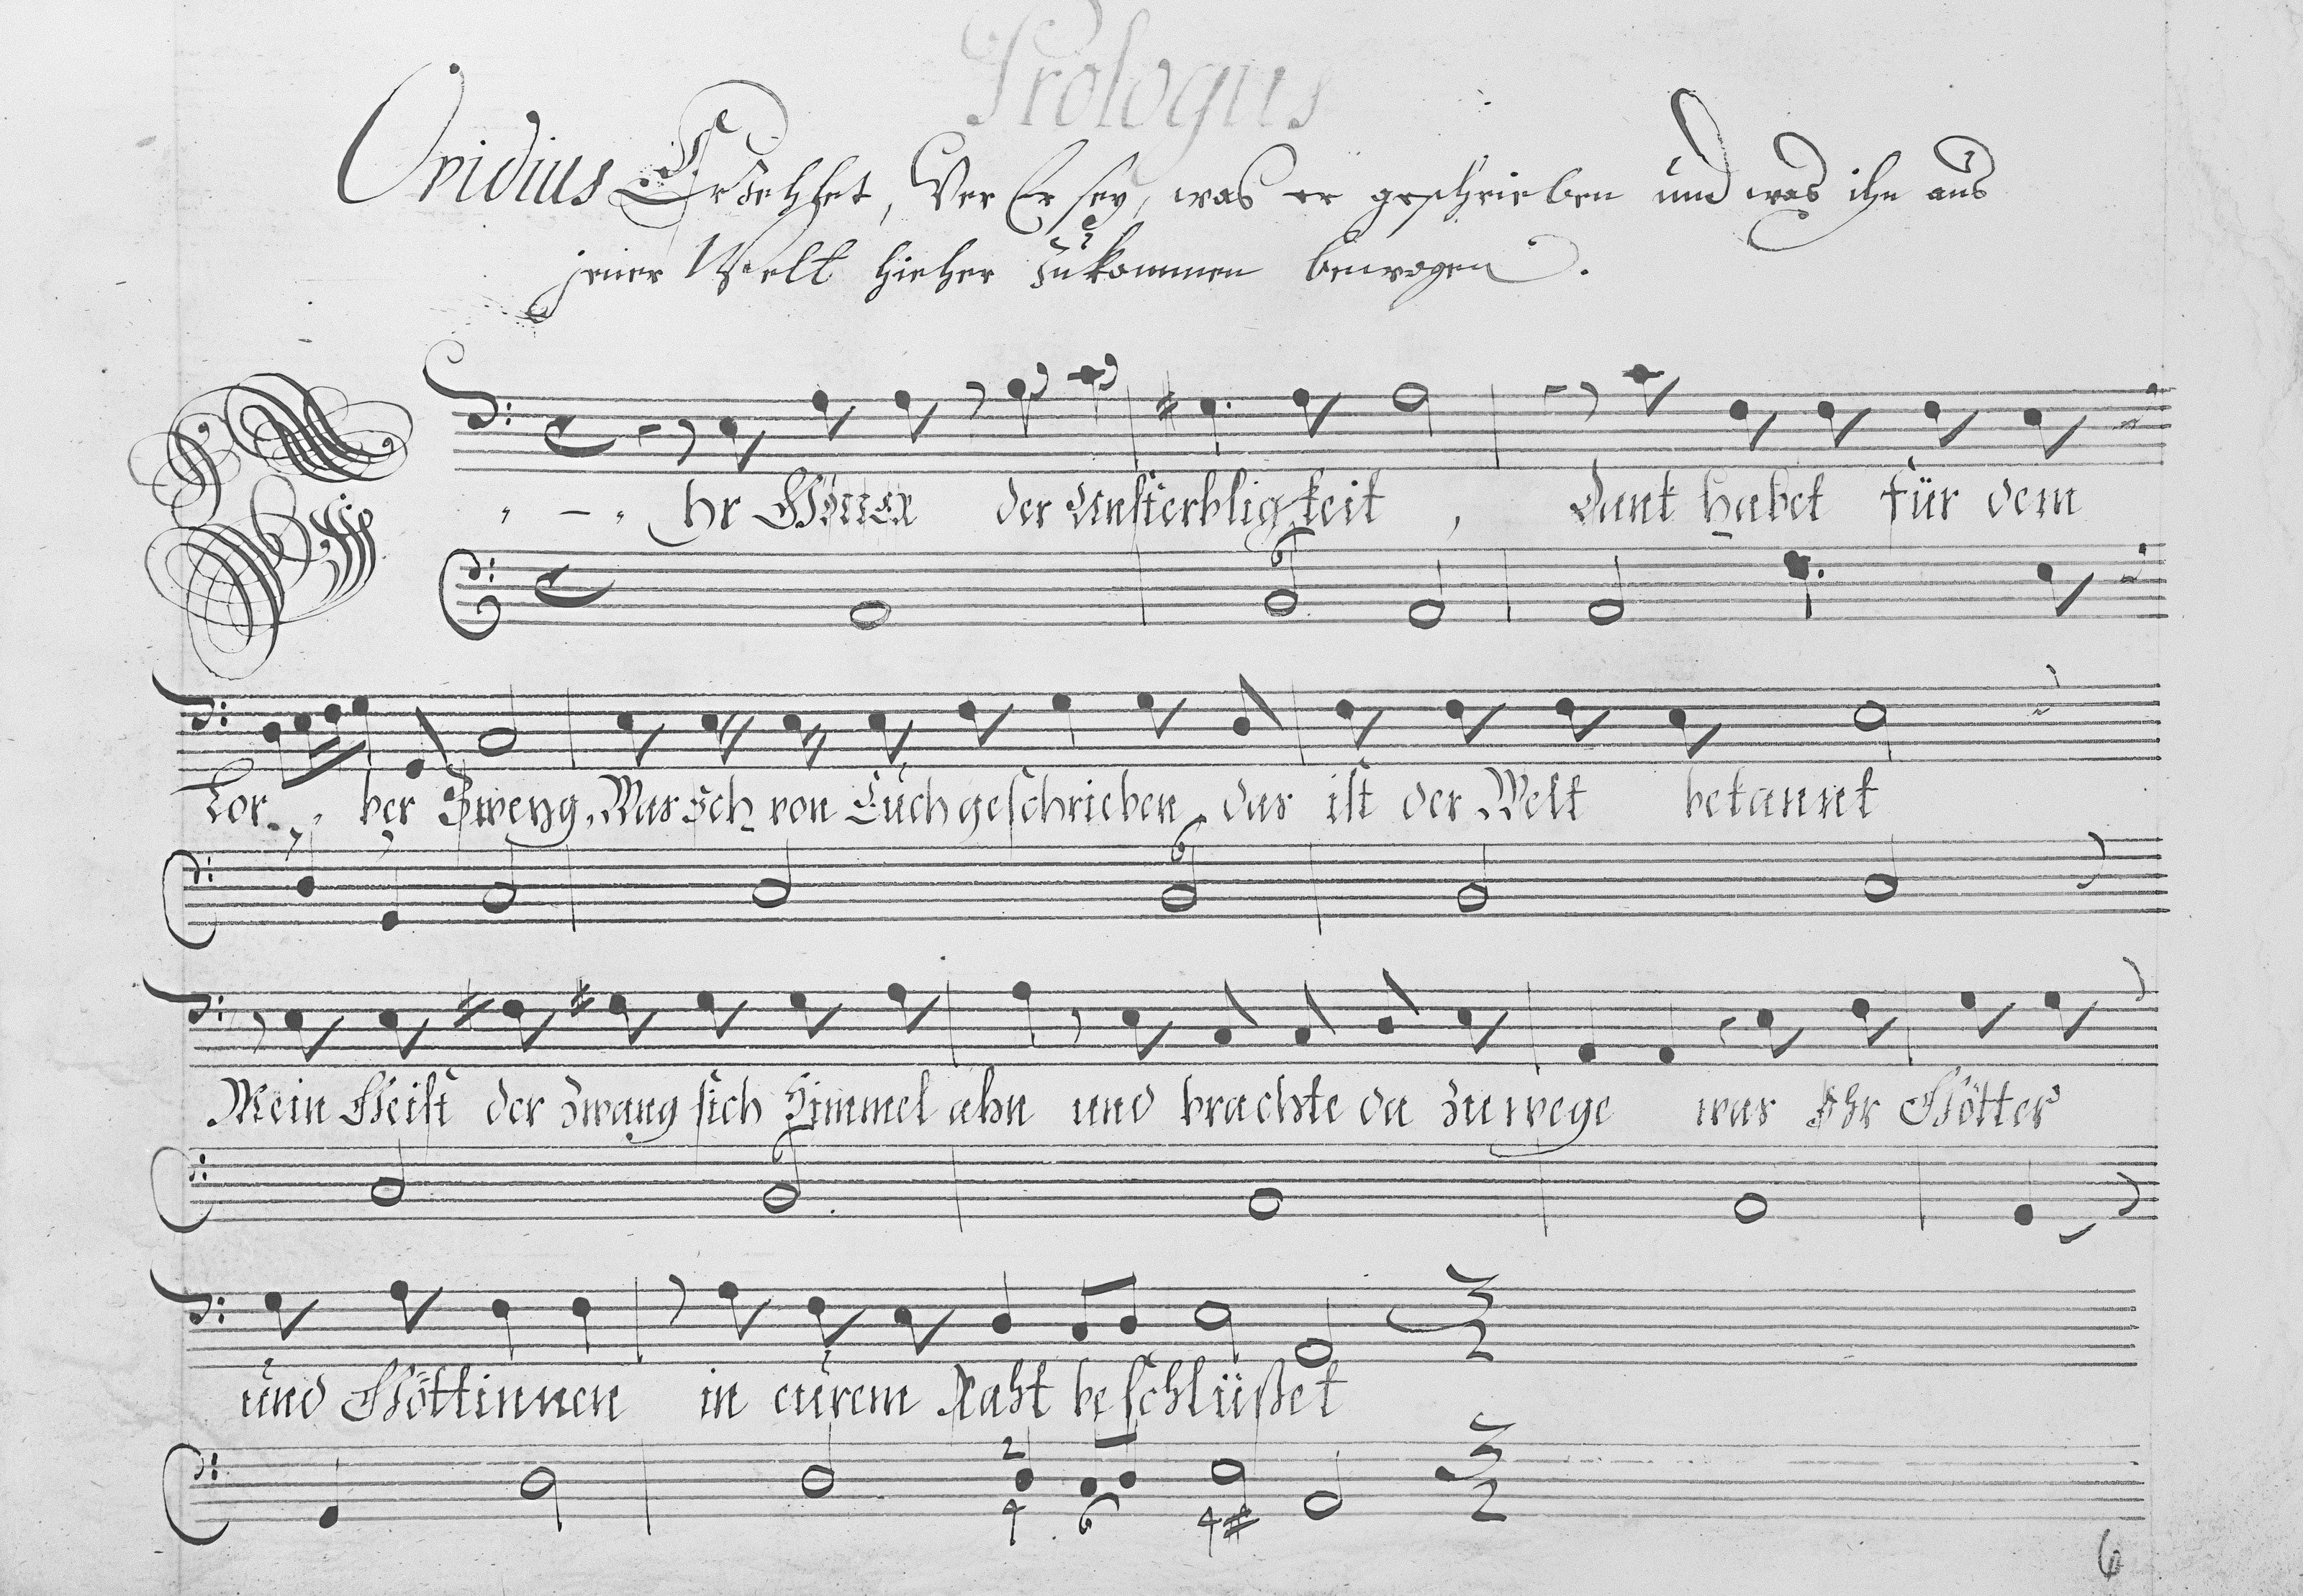 Prologus
Ovidius Erzehlet, Wer Er sey, was er geschrieben und was ihn aus
jener Welt hieher zukommen bewogen.
Ihr Götter der Unsterbligkeit, Dank habet für dem
6
Lor-ber Zweyg, Was Ich von Euch geschrieben, das ist der Welt bekannt
6
Mein Geist der zwang sich Himmel ahn und brachte da zuwege was Ihr Götter
6
und Göttinnen in eurem Raht beschlüßet
3 2
2 4 6 4# 3 2
6